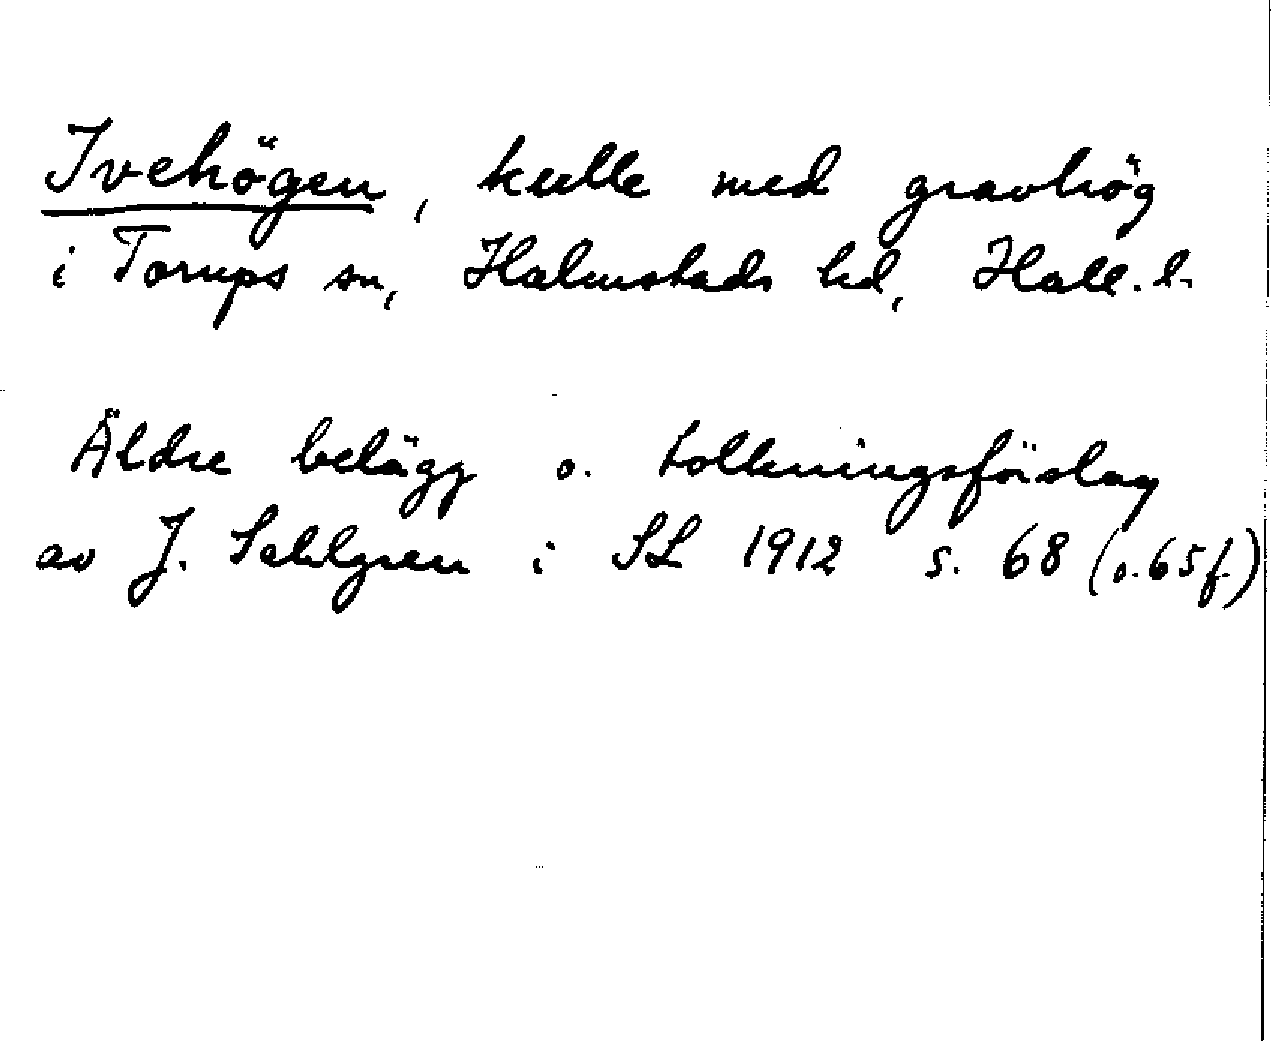 Ivehögen, kulle med gravhög
i Torups sn, Halmstads hd, Hall. l.
Äldre belägg o. tolkningsförslag
av J. Sahlgren i SL 1912 s. 68 (o. 65 f.)